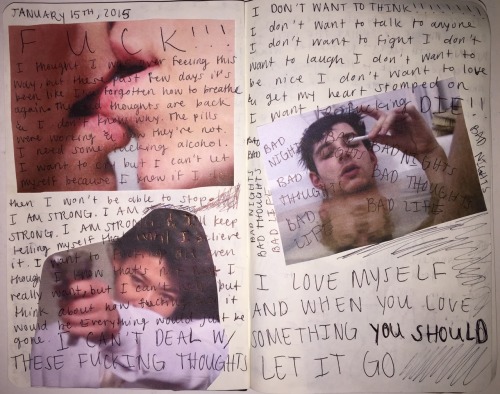 JANUARY 15TH, 2015
FUCK!!!
I thought I was over feeling this
way, but these past few days it's
been like I've forgotten how to breathe
again. The bad thoughts are back
& I don't know why. The pills
were working & now they're not.
I need some fucking alcohol.
I want to cry but I can't let
myself because I know if I do
then I won't be able to stop.
I AM STRONG. I AM STRONG. I AM
STRONG. I AM STRONG. I'll keep
telling myself that until I believe
it. I want to
though I know that's not what I
really want, but I can't
think about how it
would be. Everything would just be
gone. I CAN'T DEAL W/
THESE FUCKING THOUGHTS
I DON'T WANT TO THINK!!!!!!!!!
I don't want to talk to anyone
I don't want to fight I don't
want to laugh I don't want to
be nice I don't want to love
& get my heart stomped on
I want to fucking DIE!!
BAD NIGHTS
BAD THOUGHTS
BAD LIFE
BAD NIGHTS
BAD THOUGHTS
BAD LIFE
BAD NIGHTS
BAD THOUGHTS
BAD LIFE
BAD NIGHTS
I LOVE MYSELF
AND WHEN YOU LOVE
SOMETHING YOU SHOULD
LET IT GO